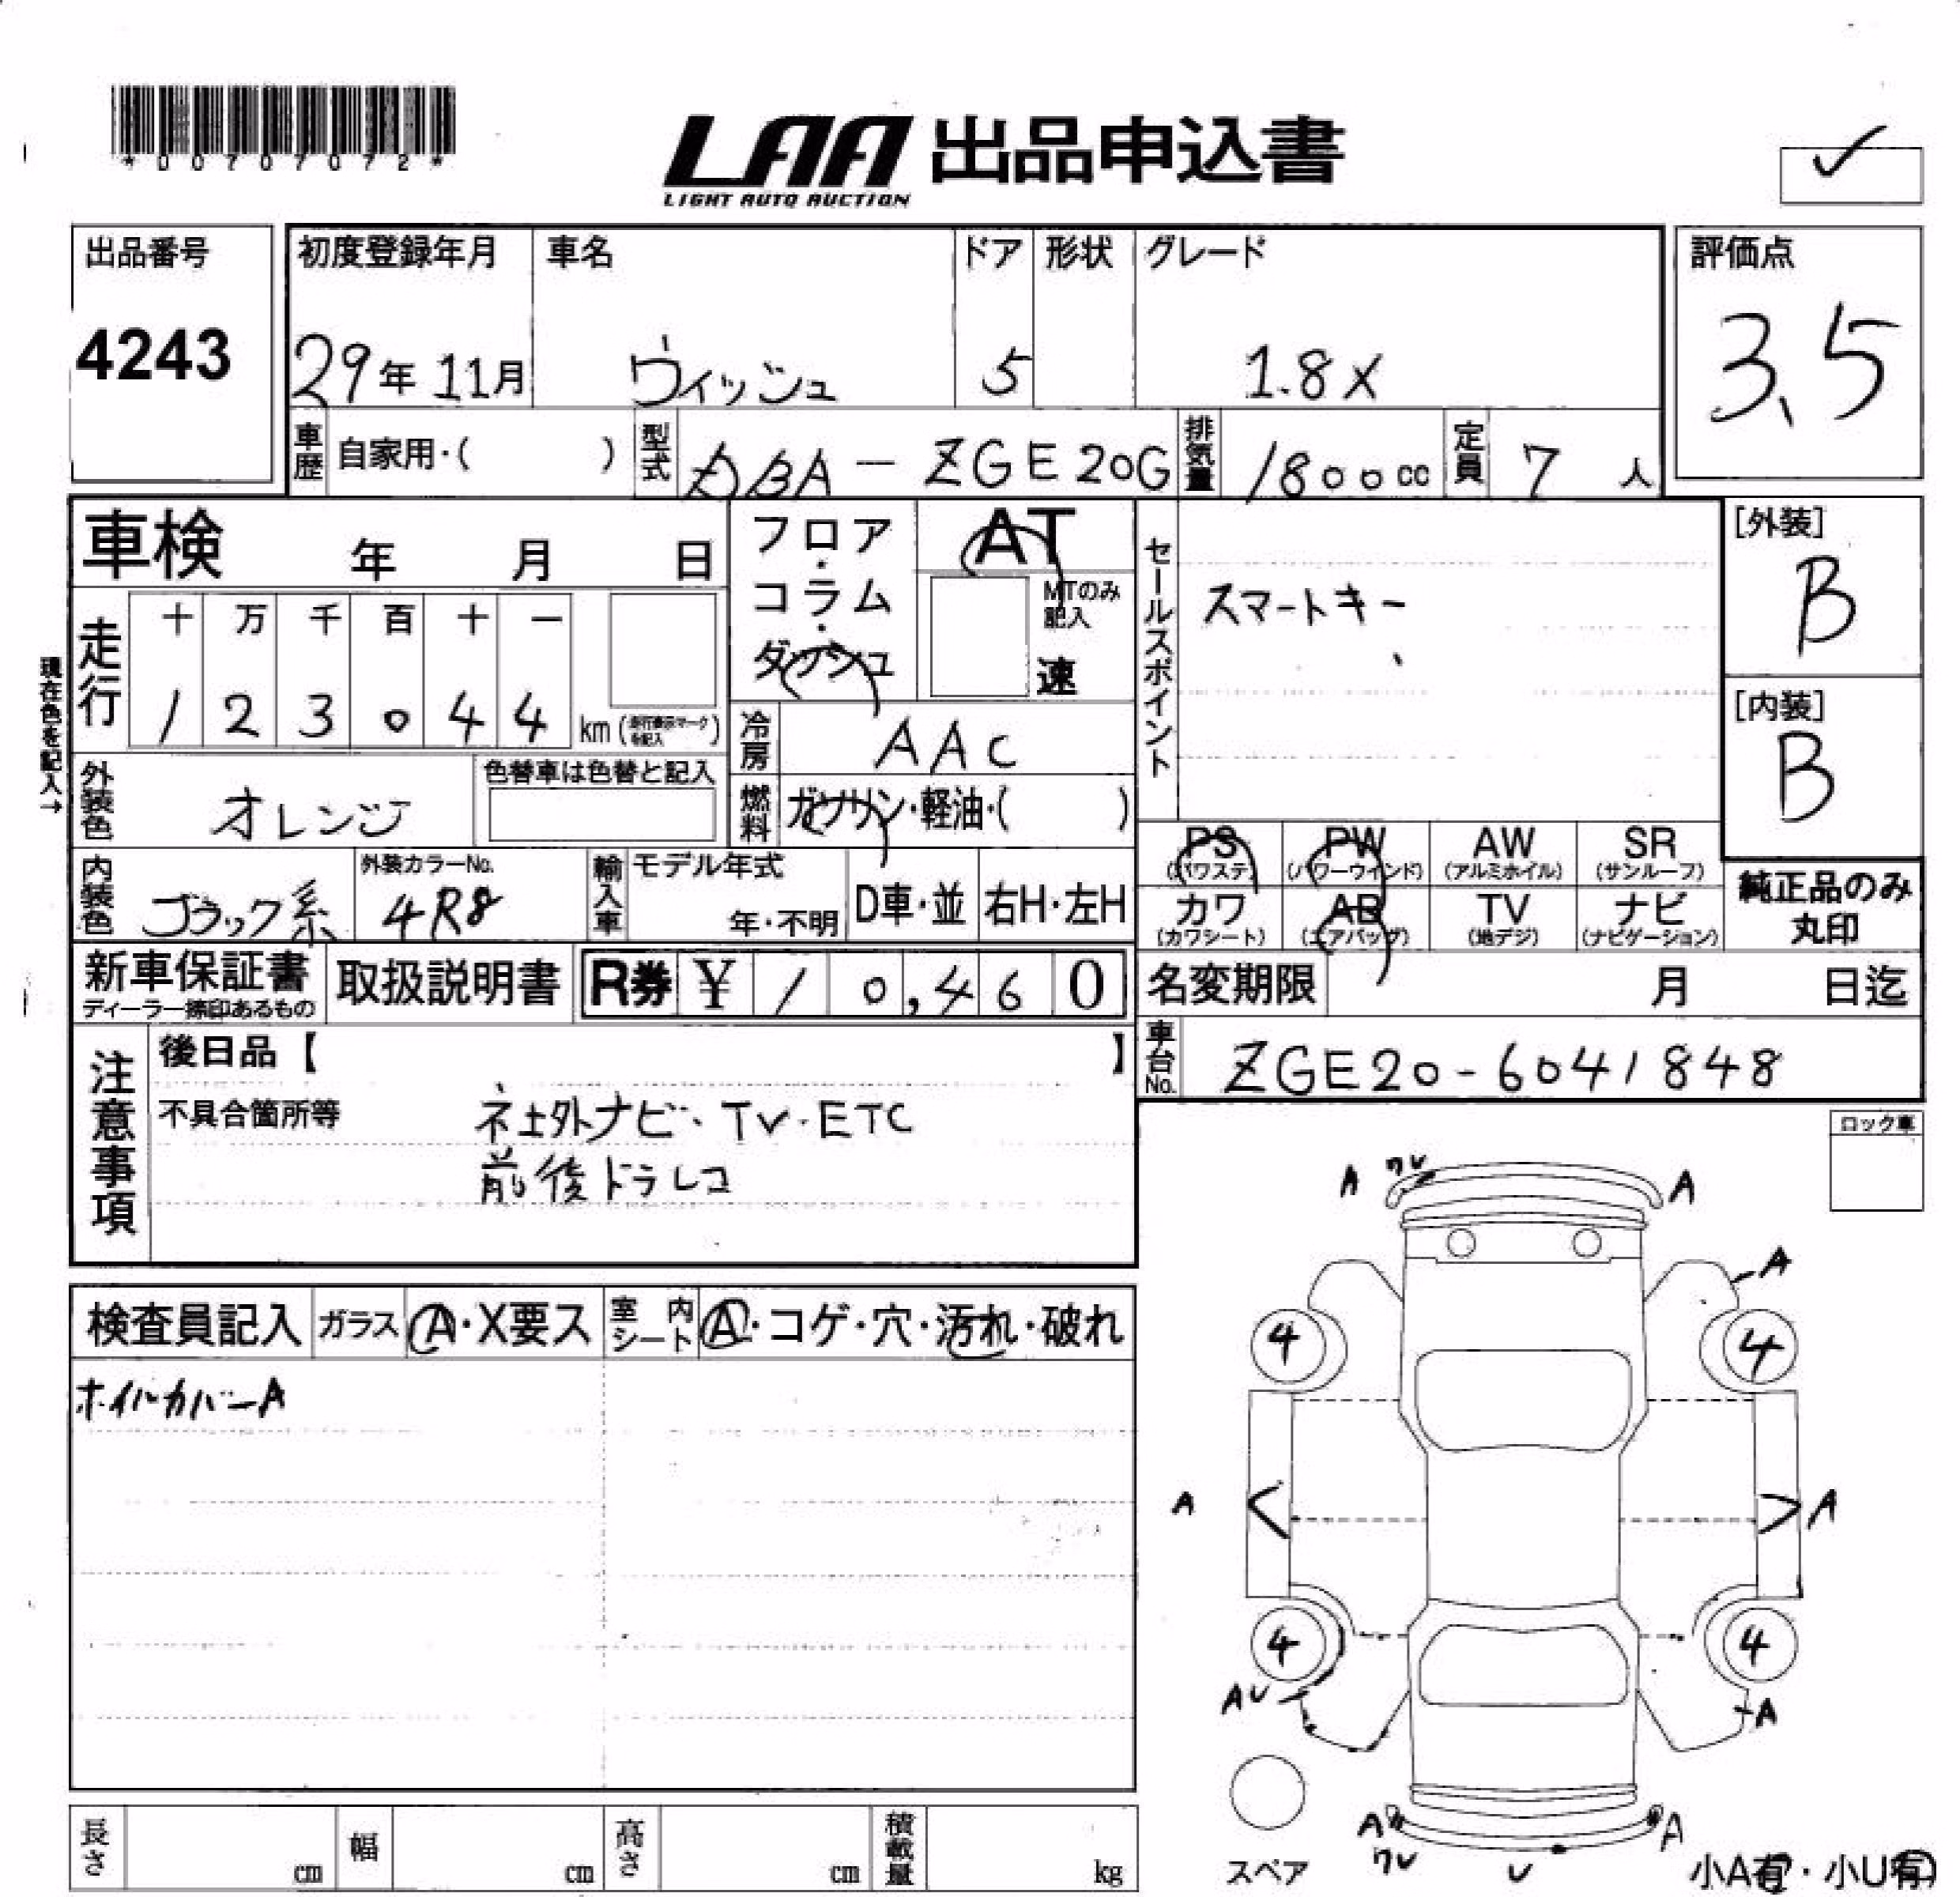 *00707072*
LAA 出品申込書
LIGHT AUTO AUCTION
出品番号 初度登録年月 車名 ドア 形状 グレード 評価点
4243 29年 11月 ウィッシュ 5 1.8X 3.5
車歴 自家用・( ) 型式 DBA-ZGE20G 排気量 1800cc 定員 7人
車検 年 月 日
フロア・コラム・ダッシュ
AT
MTのみ記入
速
セールスポイント
スマートキー
[外装]
B
[内装]
B
現在色を記入→
走行
十 万 千 百 十 一
1 2 3 0 4 4 km (走行表示マークを記入)
冷房 AAC
外装色 オレンジ
色替車は色替と記入
燃料 ガソリン・軽油・( )
PS (パワステ) PW (パワーウィンド) AW (アルミホイル) SR (サンルーフ)
カワ (カワシート) AB (エアバッグ) TV (地デジ) ナビ (ナビゲーション)
純正品のみ
丸印
内装色 ブラック系
外装カラーNo.
4R8
輸入車 モデル年式
年・不明
D車・並 右H・左H
新車保証書
ディーラー捺印あるもの
取扱説明書
R券 ¥10,460
名変期限 月 日迄
車台No. ZGE20-6041848
注意事項
後日品【 】
不具合箇所等
社外ナビ・TV・ETC
前後ドラレコ
ロック車
検査員記入 ガラス A・X要ス 室内シート A・コゲ・穴・汚れ・破れ
ホイルカバーA
A ワレ A
A
4 4
A A
4 4
AU A
A A
ワレ U
スペア
小A有・小U有
長さ cm 幅 cm 高さ cm 積載量 kg